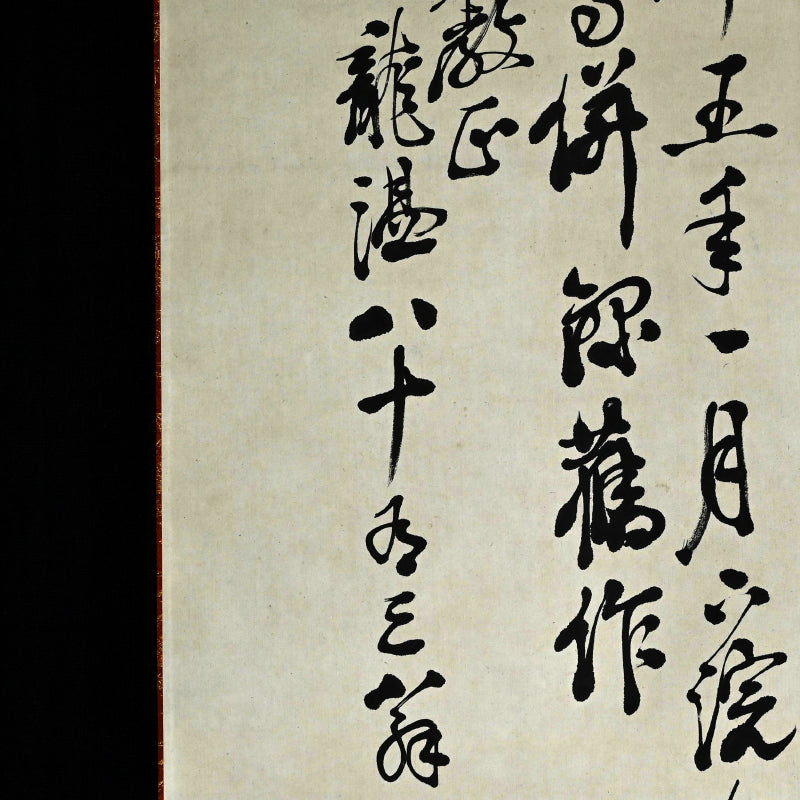 五年一月下浣
併錄舊作
教正
龍湛八十有三翁